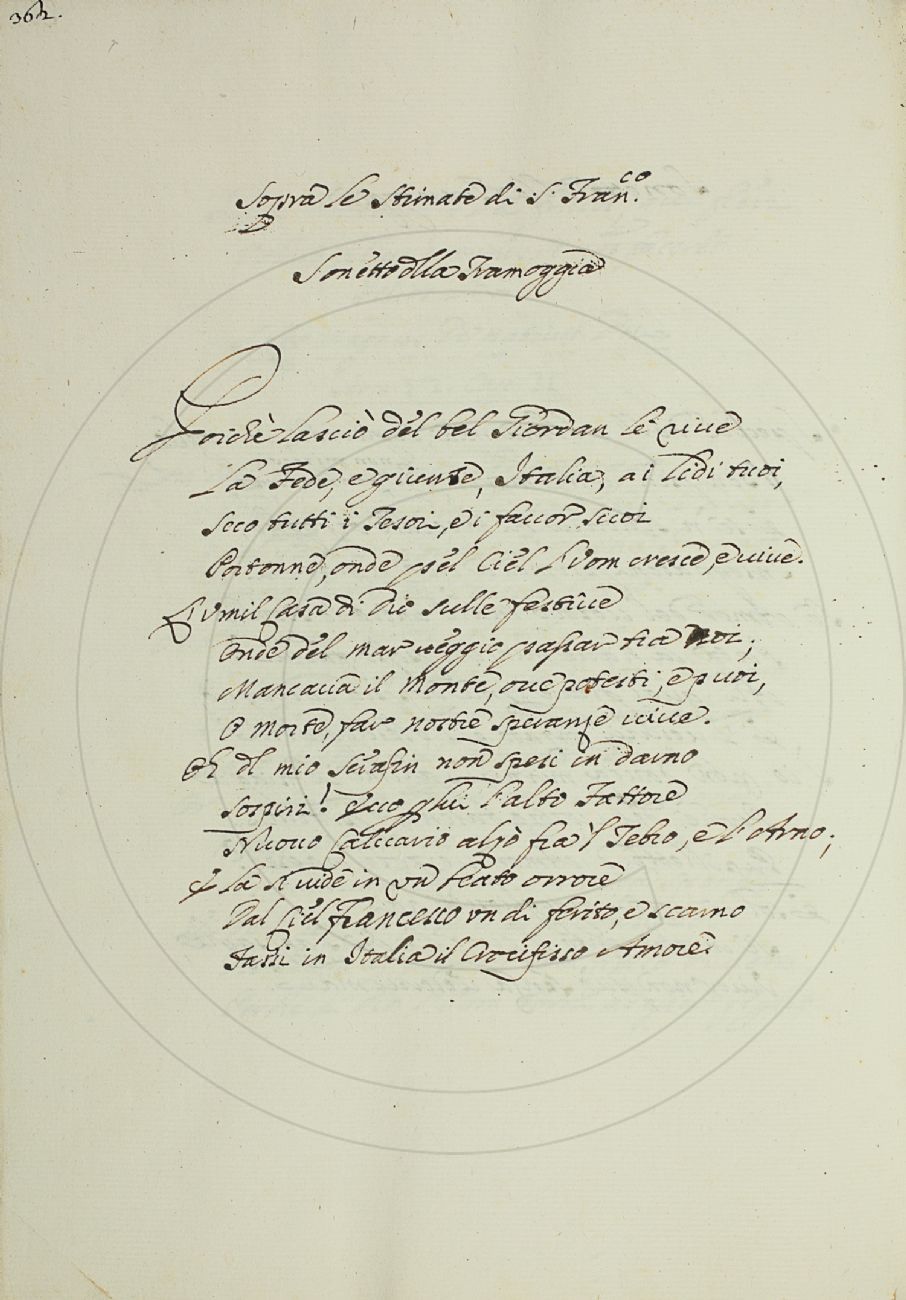 364.
Sopra le Stimate di S. Fran.co
Sonetto dlla Tramoggia
Poichè lasciò del bel Giordan le rive
La Fede, e giunse, Italia, ai lidi tuoi,
Seco tutti i Tesori, e i favor suoi
Portonne, onde pel Ciel l'Vom cresce, e vive.
L'Vmil Casa di Dio sulle festive
Onde del mar veggio passar fra noi;
Mancava il Monte, ove potesti, e puoi,
O Morte, far nostre speranze vive.
Oh dl mio Serafin non spesi in darno
Sospiri! Ecco l'alto Fattore
Nuovo Calvario alzò fra 'l Tebro, e l'Arno;
E là si vide in vn beato orrore
Dal Ciel Francesco vn di ferito, e scarno
Farsi in Italia il Crocifisso Amore.